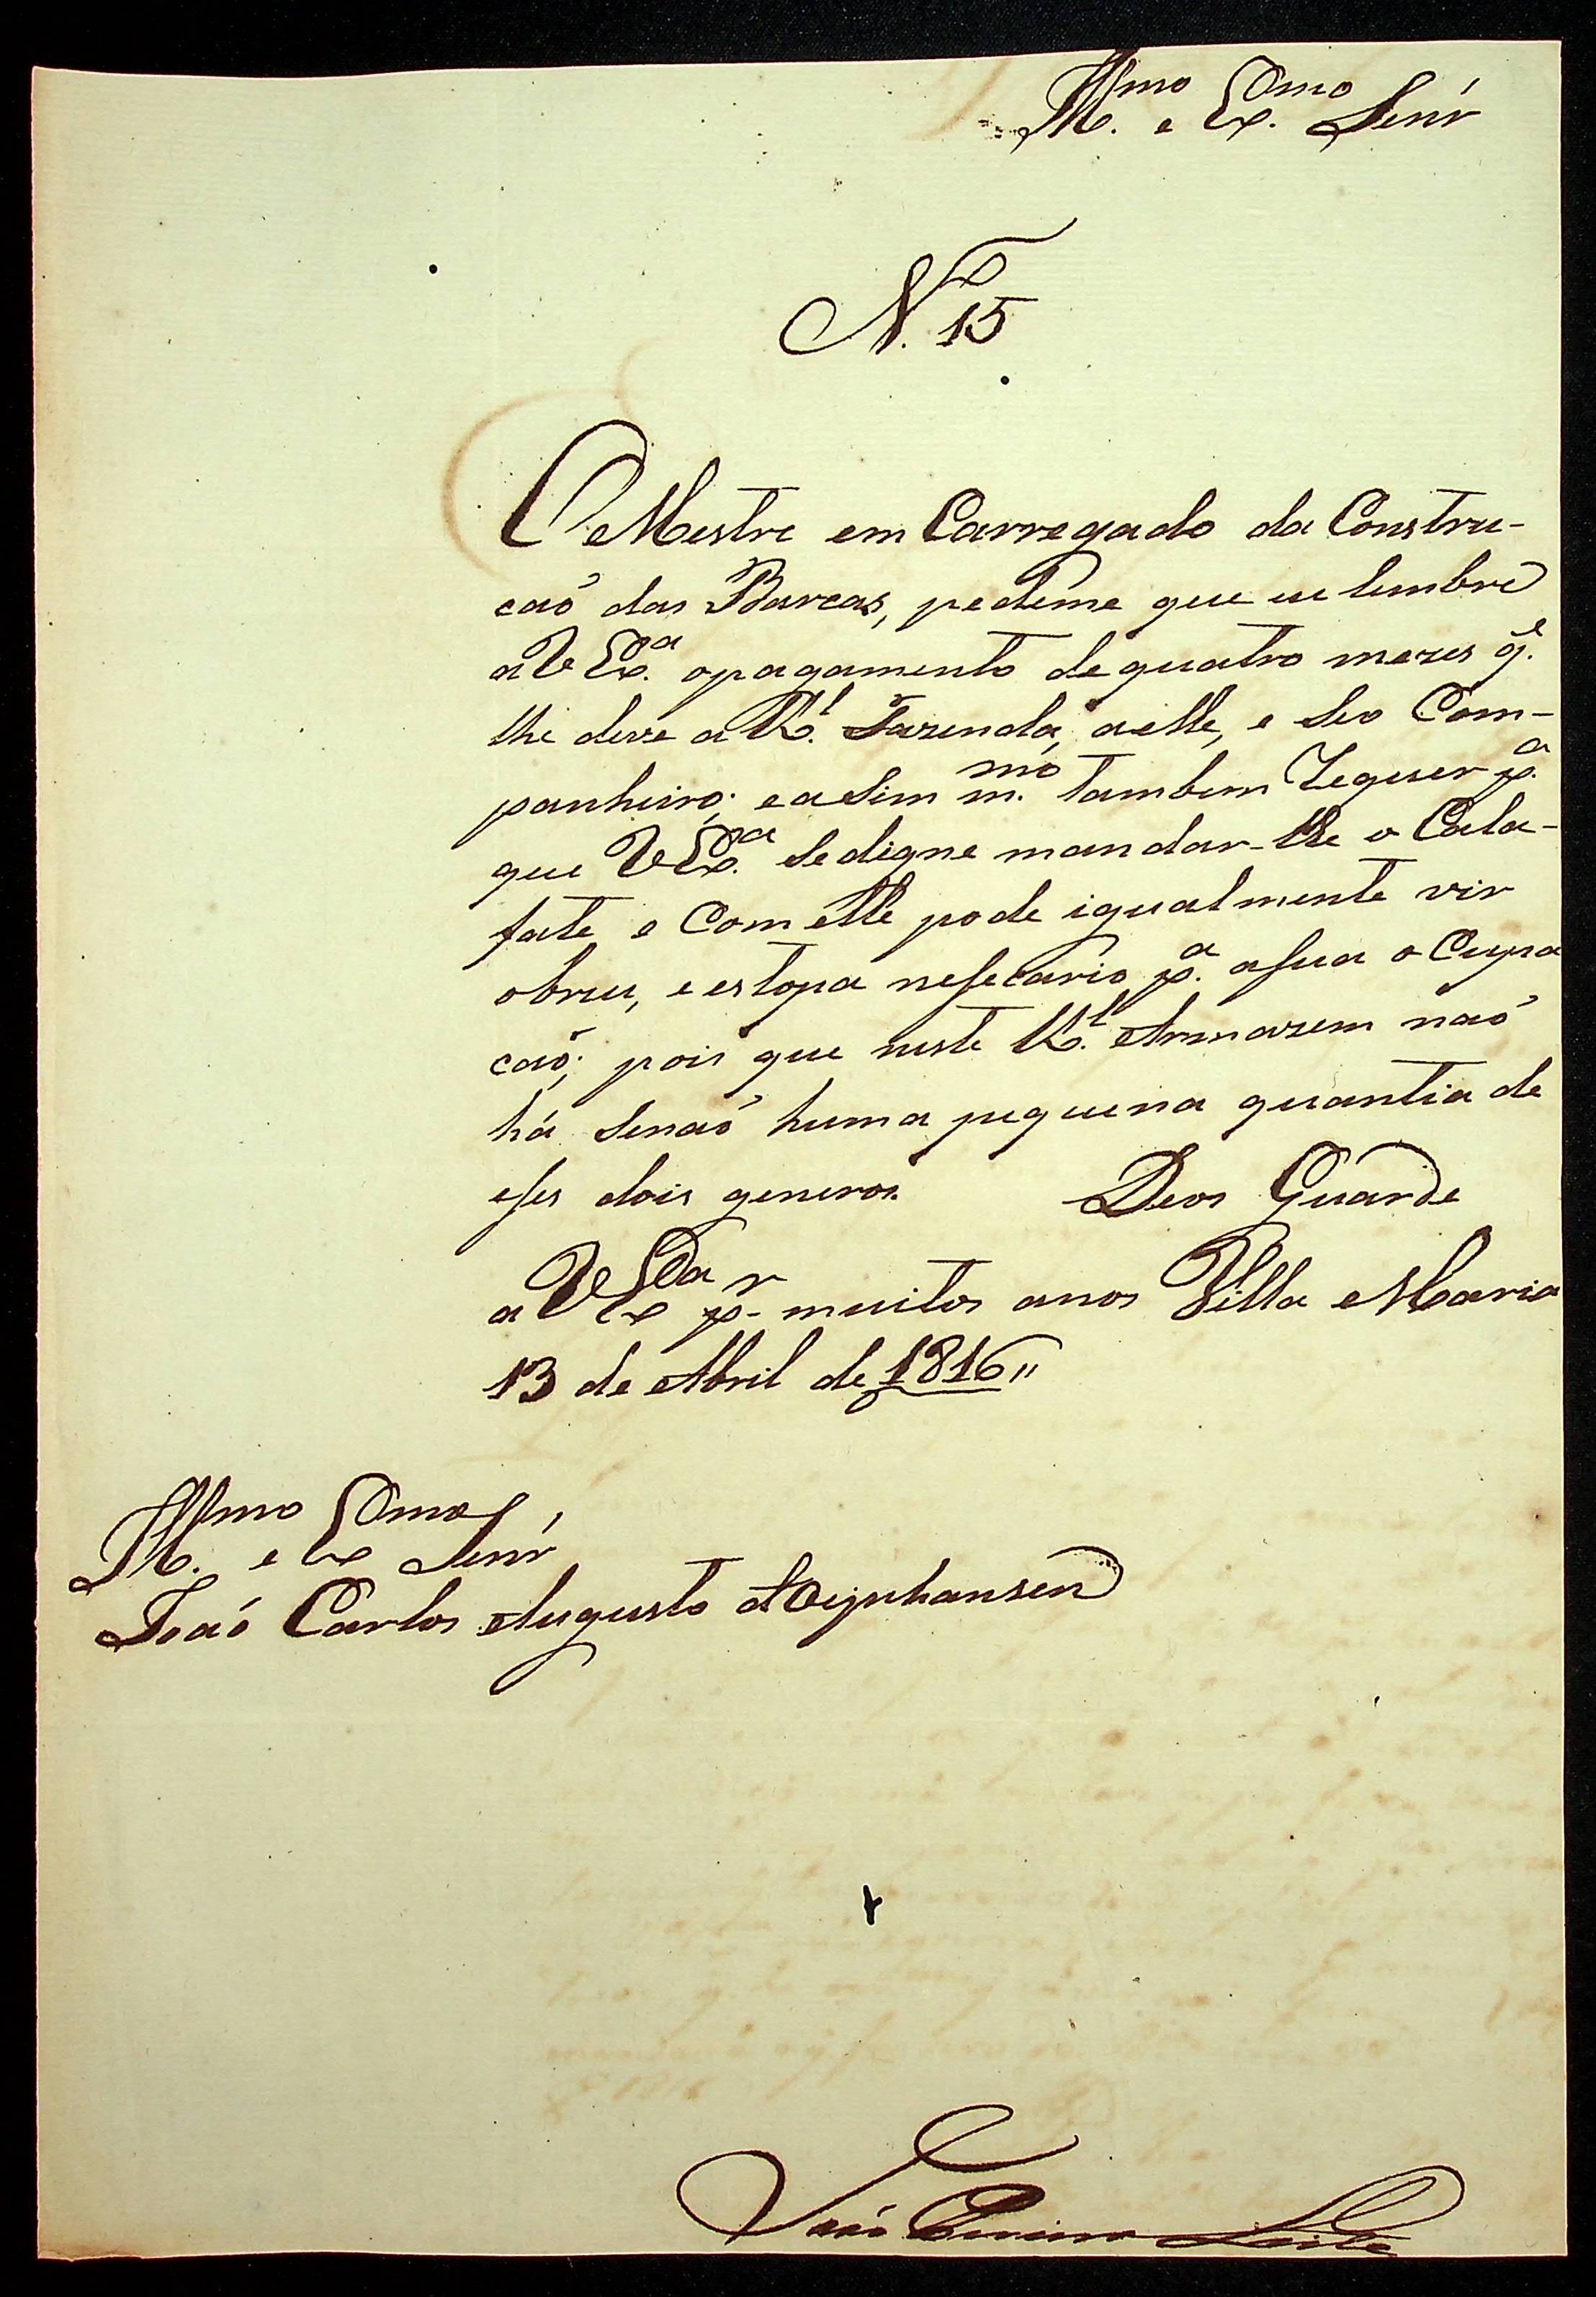 Ill.mo e Ex.mo Senr
N.º 15
O Mestre em Carregado da Constru-
caõ das Barcas, pedeme que eu lembre
a V Ex.a opagamento de quatro mezes q.e
lhe deve a R.l Fazenda, aelle, e Seo Com-
panheiro; e a Sim m.mo tambem Requer p.a
que V Ex.a Se digne mandar-lhe o Cala-
fate e Com elle pode igualmente vir
obreu, e estopa nesecario p.a asua o Cupa
caõ; pois que neste R.l Armazem naõ
há Senaõ huma pequena quantia de
eses dois generos. Deos Guarde
a V Ex.a p.r muitos anos Villa Maria
13 de Abril de 1816,,
Ill.mo e Ex.mo Senr
Joaõ Carlos Augusto d'Oeynhausen
Joaõ Leite